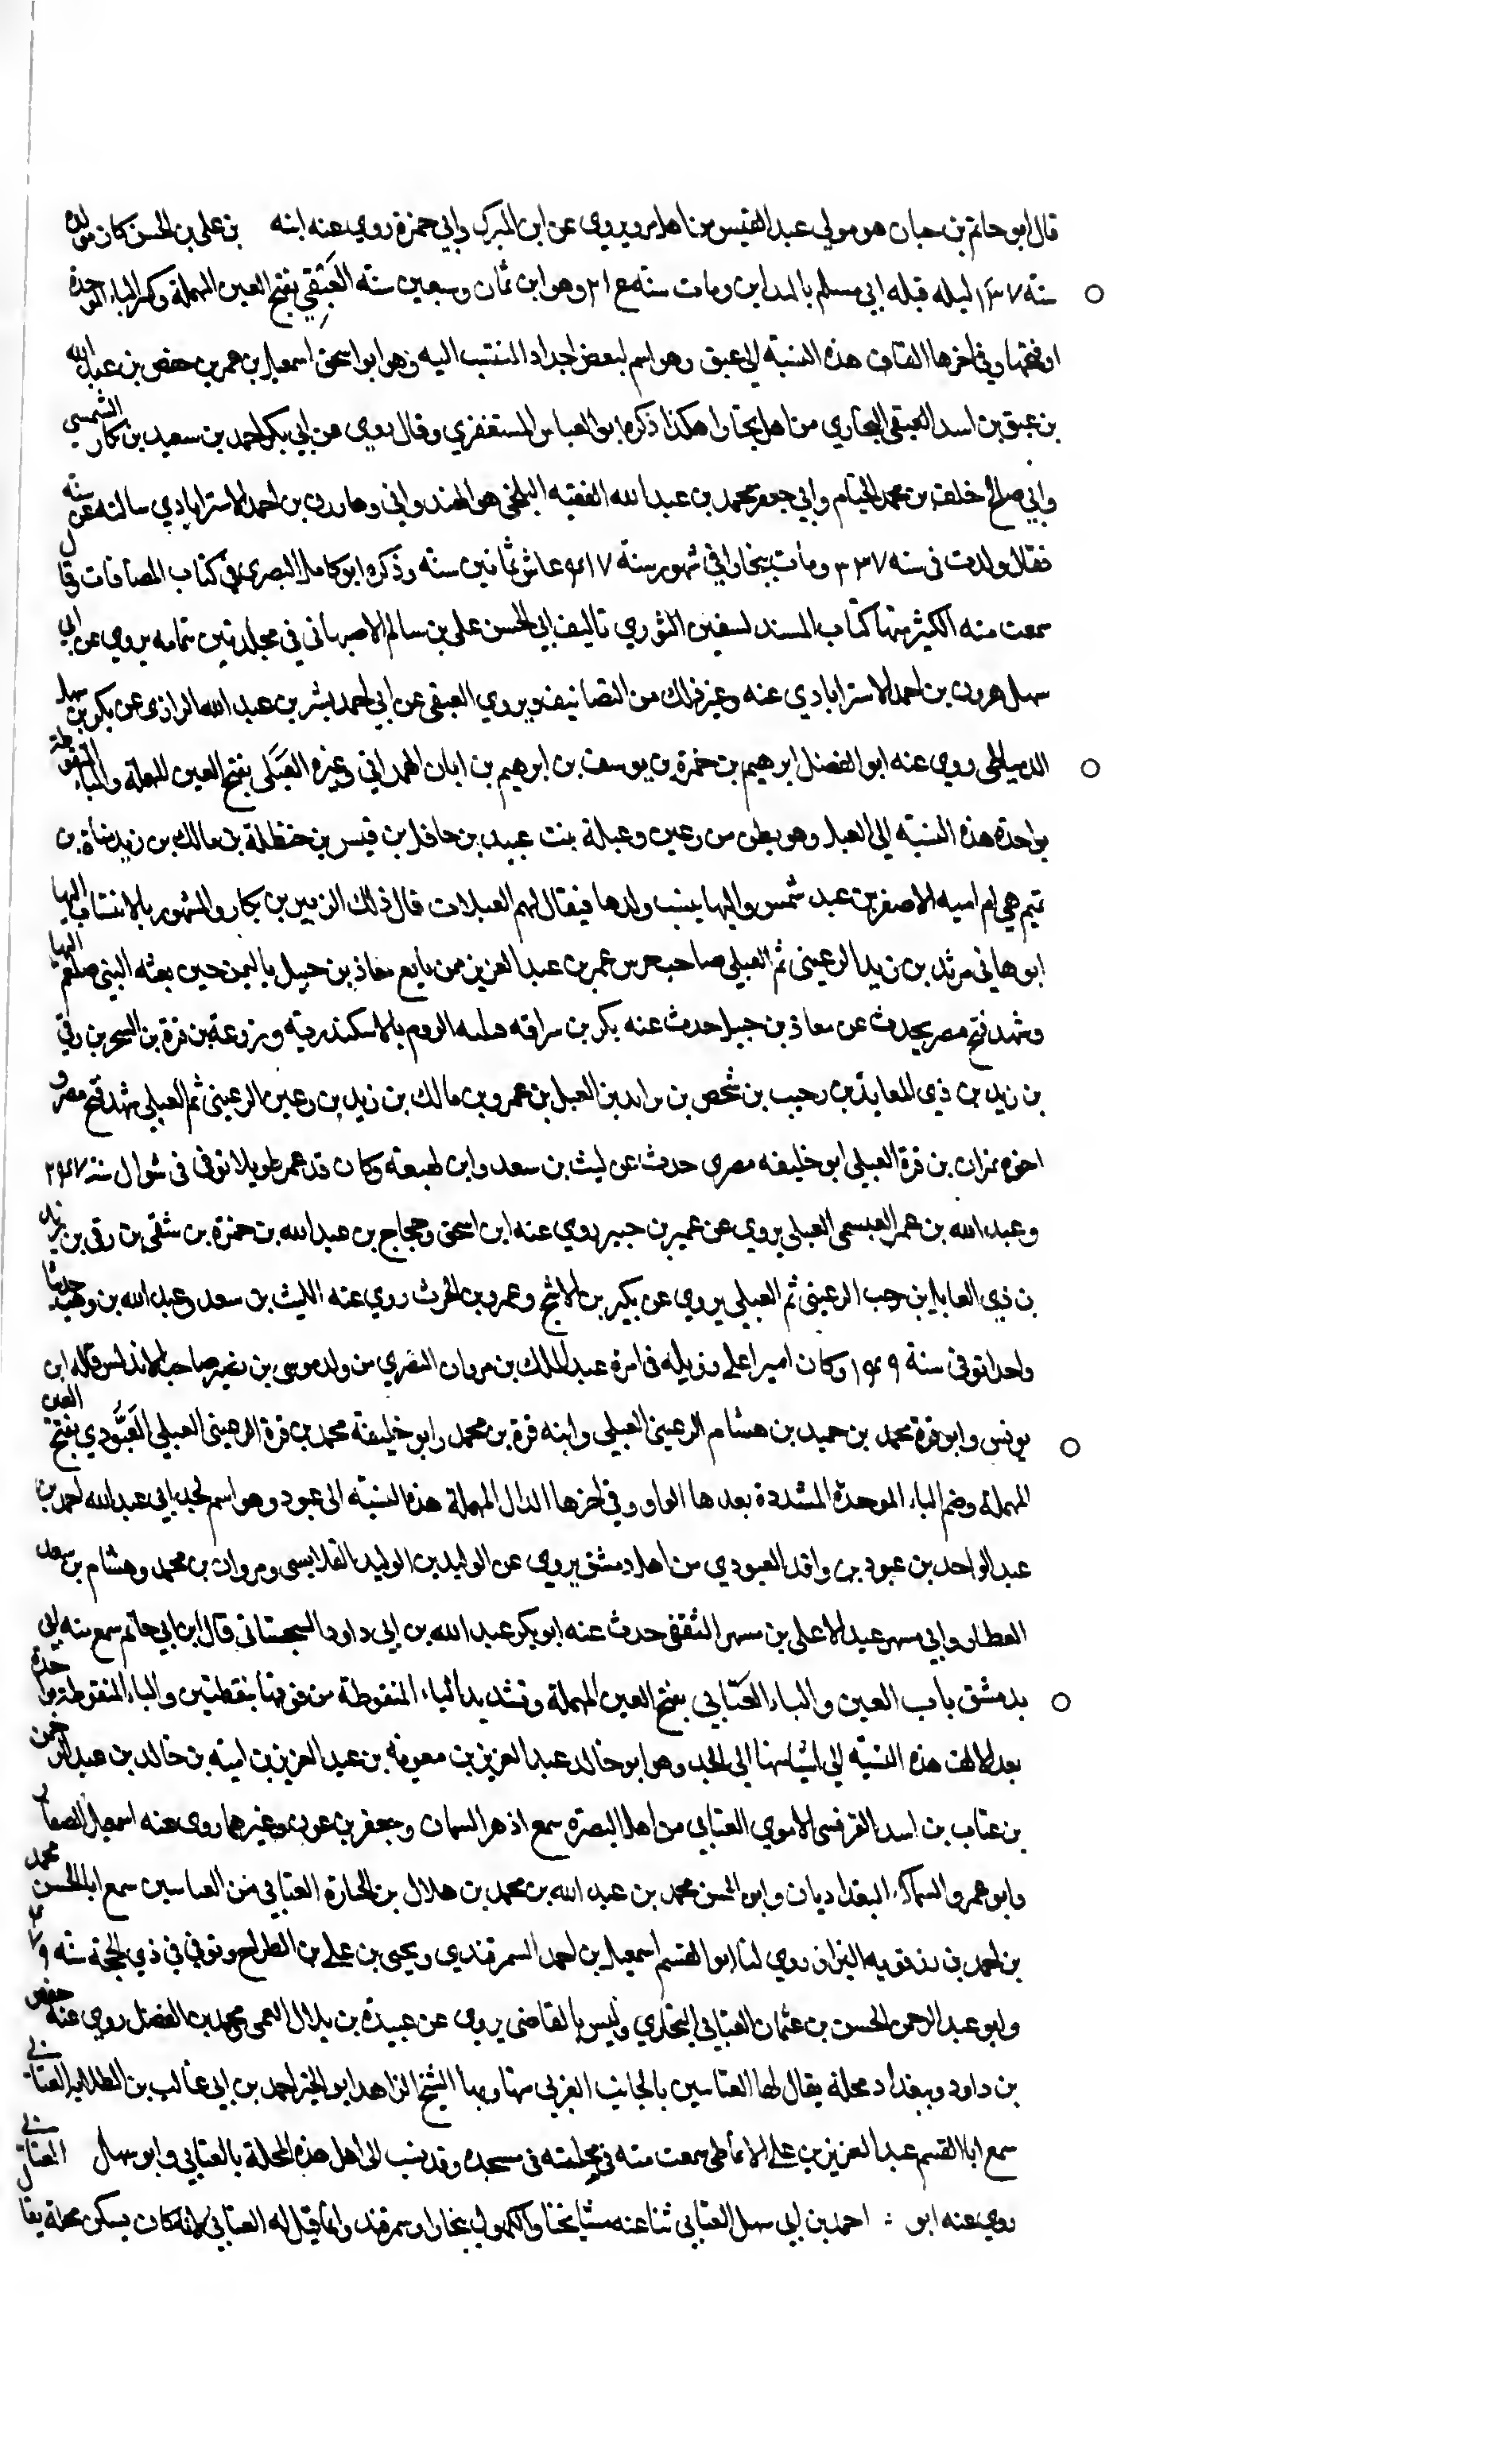 قال ابو حاتم بن حبان هو مولي عبد القيس من اهل مرو يروي عن ابن المبرك وابي حمزة روي عنه ابنه بن علي بن الحسن كان مولده
سنة ١٣٧ ليله قتله ابي مسلم بالمداين ومات سنة وهو ابن ثمان وسبعين سنه العَبِقي بفتح العين المهملة وكسر الباء الموحدة
او فتحها وفي اخرها القاف هذه النسبة الي عبق وهو اسم لبعض اجداد المنتسب اليه وهو ابو اسحق اسمعيل بن عمر بن حفص بن عبد الله
بن عبق بن اسد العبقي البخاري من اهل بخارا هكذا ذكره ابو العباس المستغفري وقال روي عن ابي بكر احمد بن سعيد بن بكار الشمسي
وابي صالح خلف بن محمد الخيام وابي جعفر محمد بن عبد الله الفقيه البلخي هو الهندواني وهارون بن احمد الاسترابادي سالته عن سنه
فقال ولدت في سنه ٣٣٧ ومات ببخارا في شهور سنة ٤١٧ عاش ثمانين سنه وذكره ابو كامل البصري في كتاب المضافات وقال
سمعت منه الكثير منها كتاب المسند لسفين الثوري تاليف ابي الحسن علي بن سالم الاصبهاني في مجلدتين بتمامه يروي عن ابي
سهل هرون بن احمد الاسترابادي عنه وغير ذلك من التصانيف ويروي العبقي عن ابي احمد بشر بن عبد الله الرازي عن بكر بن سهل
الدمياطي روي عنه ابو الفضل ابرهيم بن حمزة بن يوسف بن ابرهيم بن ابان الهمداني وغيره العَبَلي بفتح العين المهملة والباء المنقوطة
بواحدة هذه النسبة الي العبل وهو بطن من رعين وعبلة بنت عبيد بن حافل بن قيس بن حنظلة بن مالك بن زيد مناة بن
تميم هي ام اميه الاصغر بن عبد شمس واليها ينسب ولدها فيقال لهم العبلات قال ذلك الزبير بن بكار والمشهور بالانتساب اليها
ابو هاني مرثد بن زيد الرعيني ثم العبلي صاحب حرس عمر بن عبد العزيز ممن بايع معاذ بن جبيل باليمن حين بعثه النبي صلعم اليها
وشهد فتح مصر يحدث عن معاذ بن جبيل حدث عنه بكر بن سراقه الروم بالاسكندرية وزرعة بن قرة بن السحر بن رقي
بن زيد بن ذي المعايذ بن رحيب بن شخص بن مرايد بن العبل بن عمرو بن مالك بن زيد بن رعين الرعيني ثم العبلي شهد فتح مصر و
اخوه نمران بن قرة العبلي ابو خليفه مصري حدث عن ليث بن سعد وابن لهيعة وكان قد عمر طويلا توفي في شوال سنة ٢٤٧
وعبد الله بن عمر العبسمي العبلي يروي عن عمير بن جبير روي عنه ابن اسحق وحجاج بن عبد الله بن حمزة بن شفي بن رقي بن زيد
بن ذي العابل بن رحب الرعيني ثم العبلي يروي عن بكير بن الاشج وعمرو بن الحرث روي عنه الليث بن سعد وعبد الله بن وهب حديثا
واحدا توفي سنة ١٤٩ وكان اميرا علي وزيله في امرة عبد الملك بن مروان النصري من ولد موسي بن نصير صاحب الاندلس قاله ابن
يونس وابو قرة محمد بن حميد بن هشام الرعيني العبلي وابنه قرة بن محمد وابو خليفة محمد بن قرة الرعيني العبلي العَبُّودي بفتح العين
المهملة وضم الباء الموحدة المشددة بعدها الواو وفي اخرها الدال المهملة هذه النسبة الي عبود وهو اسم لجد ابي عبد الله احمد بن
عبد الواحد بن عبود بن واقد العبودي من اهل دمشق يروي عن الوليد بن الوليد القلانسي ومروان بن محمد وهشام بن سعد
العطار وابي مسهر عبد الاعلي بن مسهر الثقفي حدث عنه ابو بكر عبد الله بن ابي داود السجستاني قال ابن ابي حاتم سمع منه ابي
بدمشق باب العين والباء العَتّابي بفتح العين المهملة وتشديد التاء المنقوطة من فوقها بنقطتين والباء المنقوطة بواحدة
بعد الالف هذه النسبة الي اشيا منها الي الجد وهو ابو خالد عبد العزيز بن معوية بن عبد العزيز بن امية بن خالد بن عبد الرحمن
بن عتاب بن اسد القرشي الاموي العتابي من اهل البصرة سمع اذهر السمان وجعفر بن عون وغيرهما روي عنه اسمعيل الصفار
وابو عمرو السماك البغداديان وابو الحسن محمد بن عبد الله بن محمد بن هلال بن الحارة العتابي من العتابيين سمع ابا الحسن محمد
بن احمد بن رزقويه البزاز روي لنا ابو القسم اسمعيل بن احمد السمرقندي ويحيي بن علي بن الطراح وتوفي في ذي الحجة سنة
وابو عبد الرحمن الحسن بن عثمان العتابي البخاري وليس بالقاضي يروي عن عبيدة بن بلال العمي ومحمد بن الفضل روي عنه حفص
بن داود وببغداد محلة يقال لها العتابيين بالجانب الغربي منها وبها الشيخ الزاهد ابو الخير احمد بن ابي غالب بن الطلاية العتابي
سمع ابا القسم عبد العزيز بن علي الانماطي سمعت منه في محلته في مسجده وقد ينسب الي اهل هذه المحلة بالعتابي وابو سهل العتابي
روي عنه ابو احمد بن ابي سهل العتابي ثنا عنه مشايخنا والكهول ببخارا وسمرقند وانما قيل له العتابي لانه كان يسكن محلة يقال